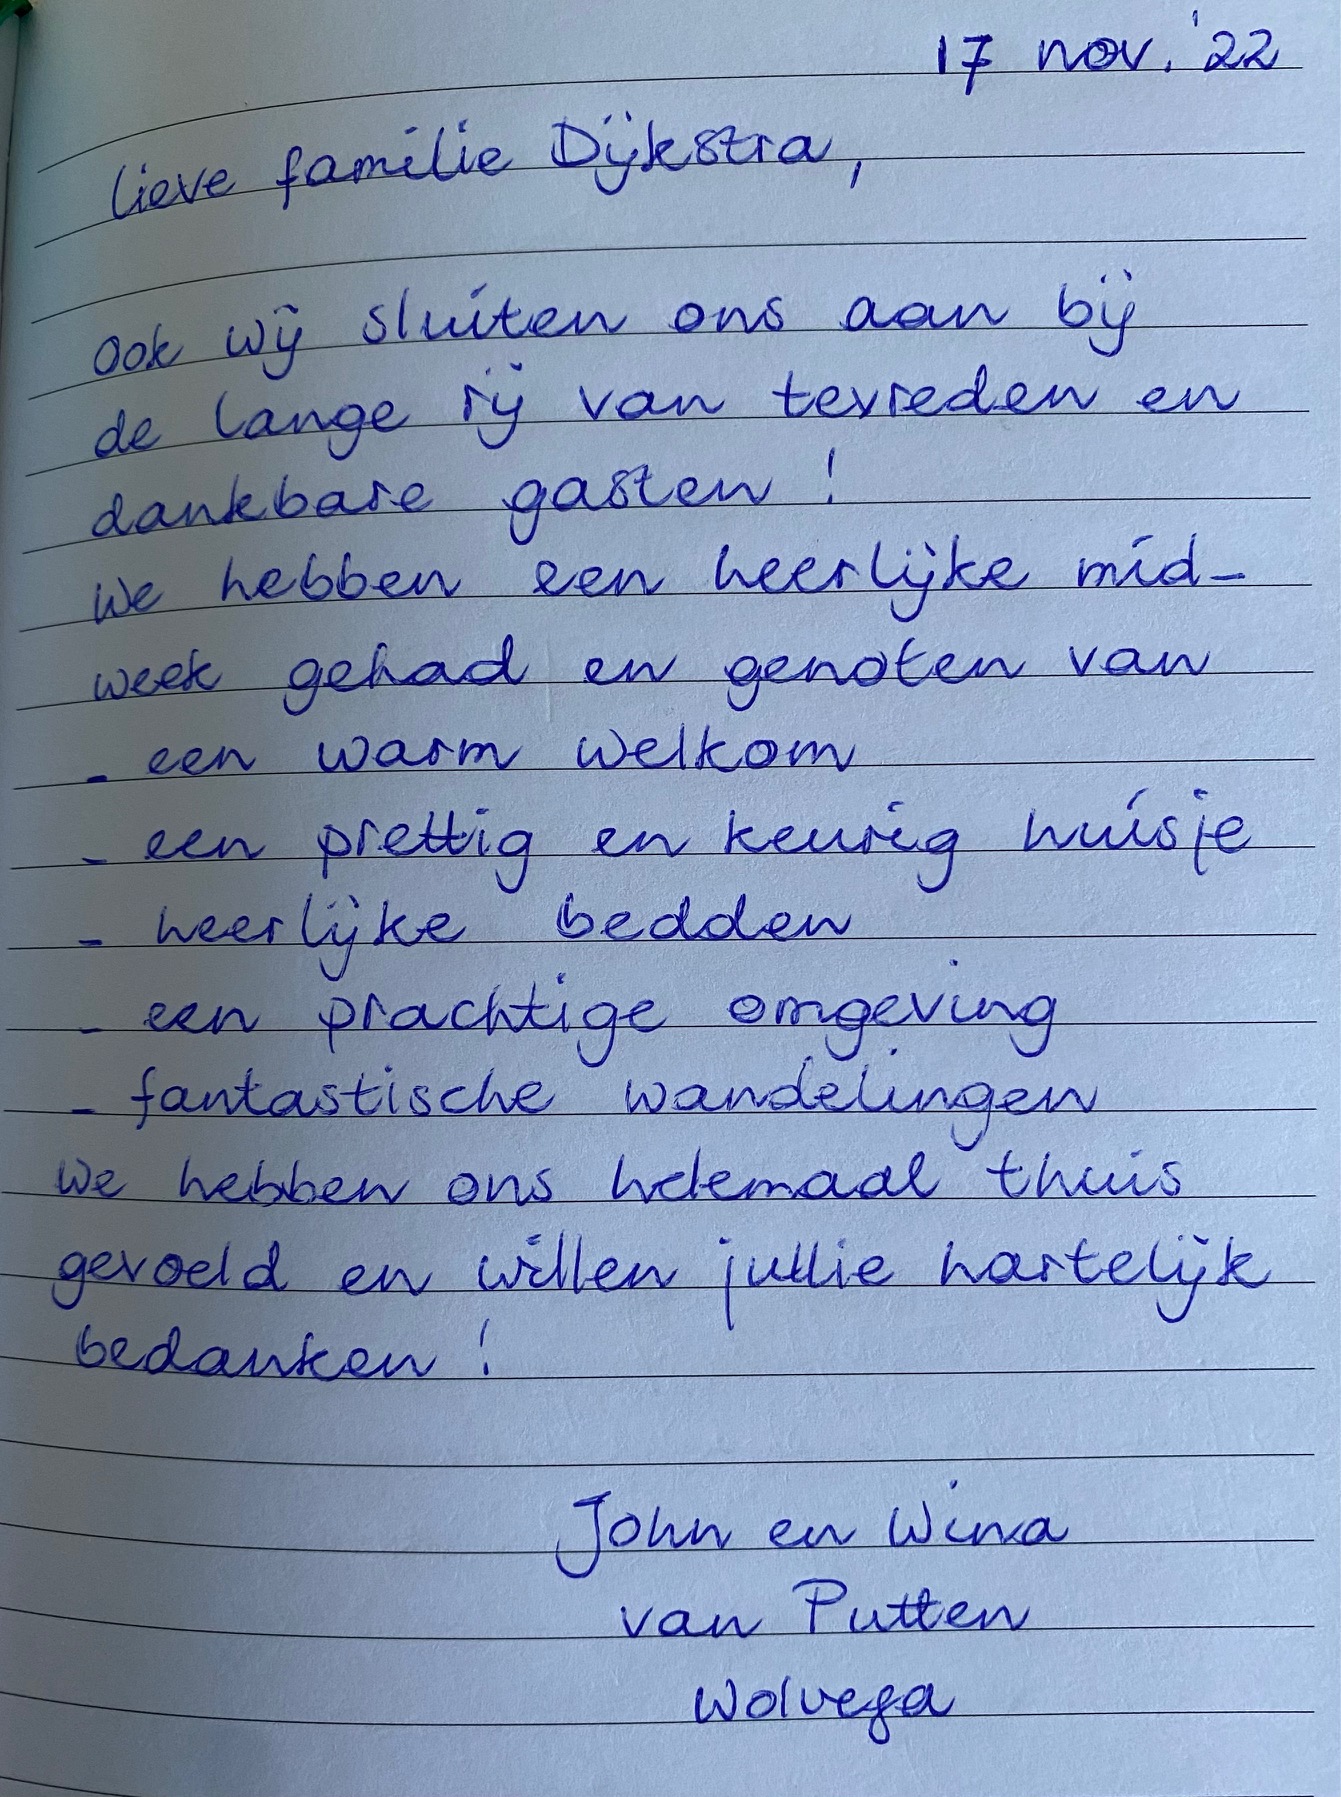 17 nov. '22
lieve familie Dijkstra,
Ook wij sluiten ons aan bij
de lange rij van tevreden en
dankbare gasten !
We hebben een heerlijke mid-
week gehad en genoten van
- een warm welkom
- een prettig en keurig huisje
- heerlijke bedden
- een prachtige omgeving
- fantastische wandelingen
We hebben ons helemaal thuis
gevoeld en willen jullie hartelijk
bedanken !
John en Wina
van Putten
Wolvega